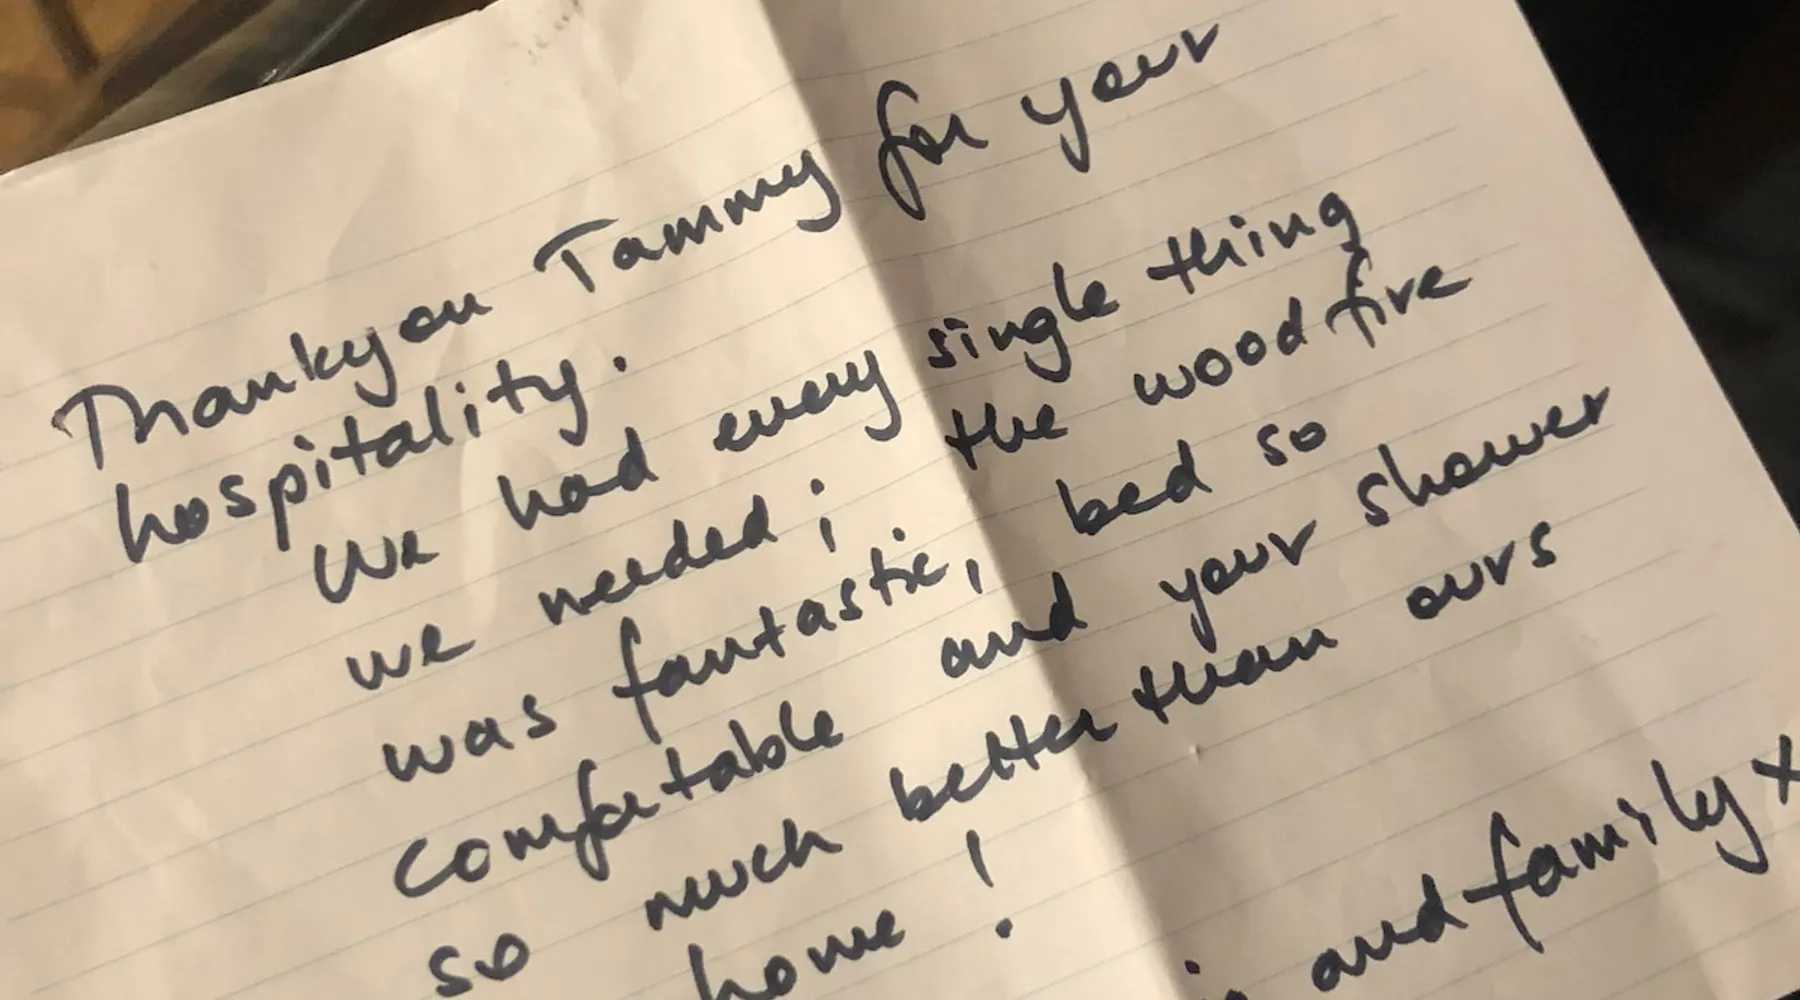 Thankyou Tammy for your
hospitality.
We had every single thing
we needed; the wood fire
was fantastic, bed so
comfortable and your shower
so much better than ours
home!
and family x